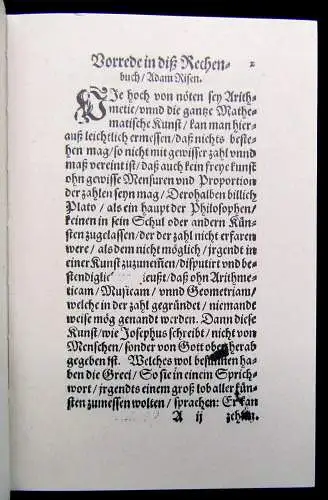 Vorrede in diß Rechen-
buch / Adam Risen. 2
WIe hoch von nöten sey Arith-
metic / vnnd die gantze Mathe-
matische Kunst / kan man hier-
auß leichtlich ermessen / daß nichts beste-
hen mag / so nicht mit gewisser zahl vnnd
maß vereint ist / daß auch kein freye kunst
ohn gewisse Mensuren vnd Proportion
der zahlen seyn mag / Derohalben billich
Plato / als ein haupt der Philosophen /
keinen in sein Schul oder andern Kün-
sten zugelassen / der der zahl nicht erfaren
were / als dem nicht möglich / jrgendt in
einer Kunst zuzunemen / disputirt vnd be-
stendiglic eußt / daß ohn Arithme-
ticam / Musicam / vnnd Geometriam /
welche in der zahl gegründet / niemandt
weise mög genandt werden. Dann diese
Kunst / wie Josephus schreibt / nicht von
Menschen / sonder von Gott oben herab
gegeben ist. Welches wol besunnen ha-
ben die Greci / So sie in einem Sprich-
wort / jrgendts einem groß lob aller kün-
sten zumessen wolten / sprachen: Er kan
A ij zehlen.